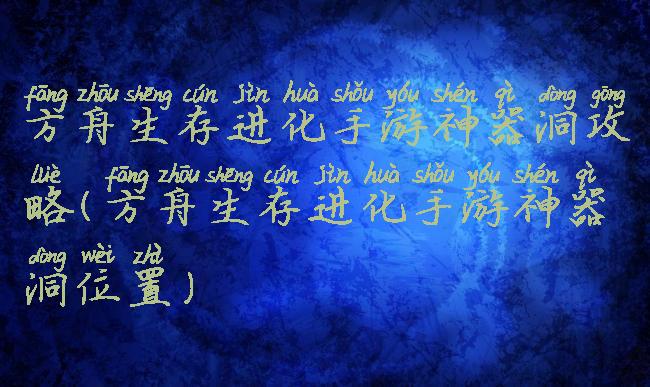 fāng zhōu shēng cún jìn huà shǒu yóu shén qì dòng gōng
方舟生存进化手游神器洞攻
luè fāng zhōu shēng cún jìn huà shǒu yóu shén qì
略(方舟生存进化手游神器
dòng wèi zhì
洞位置)